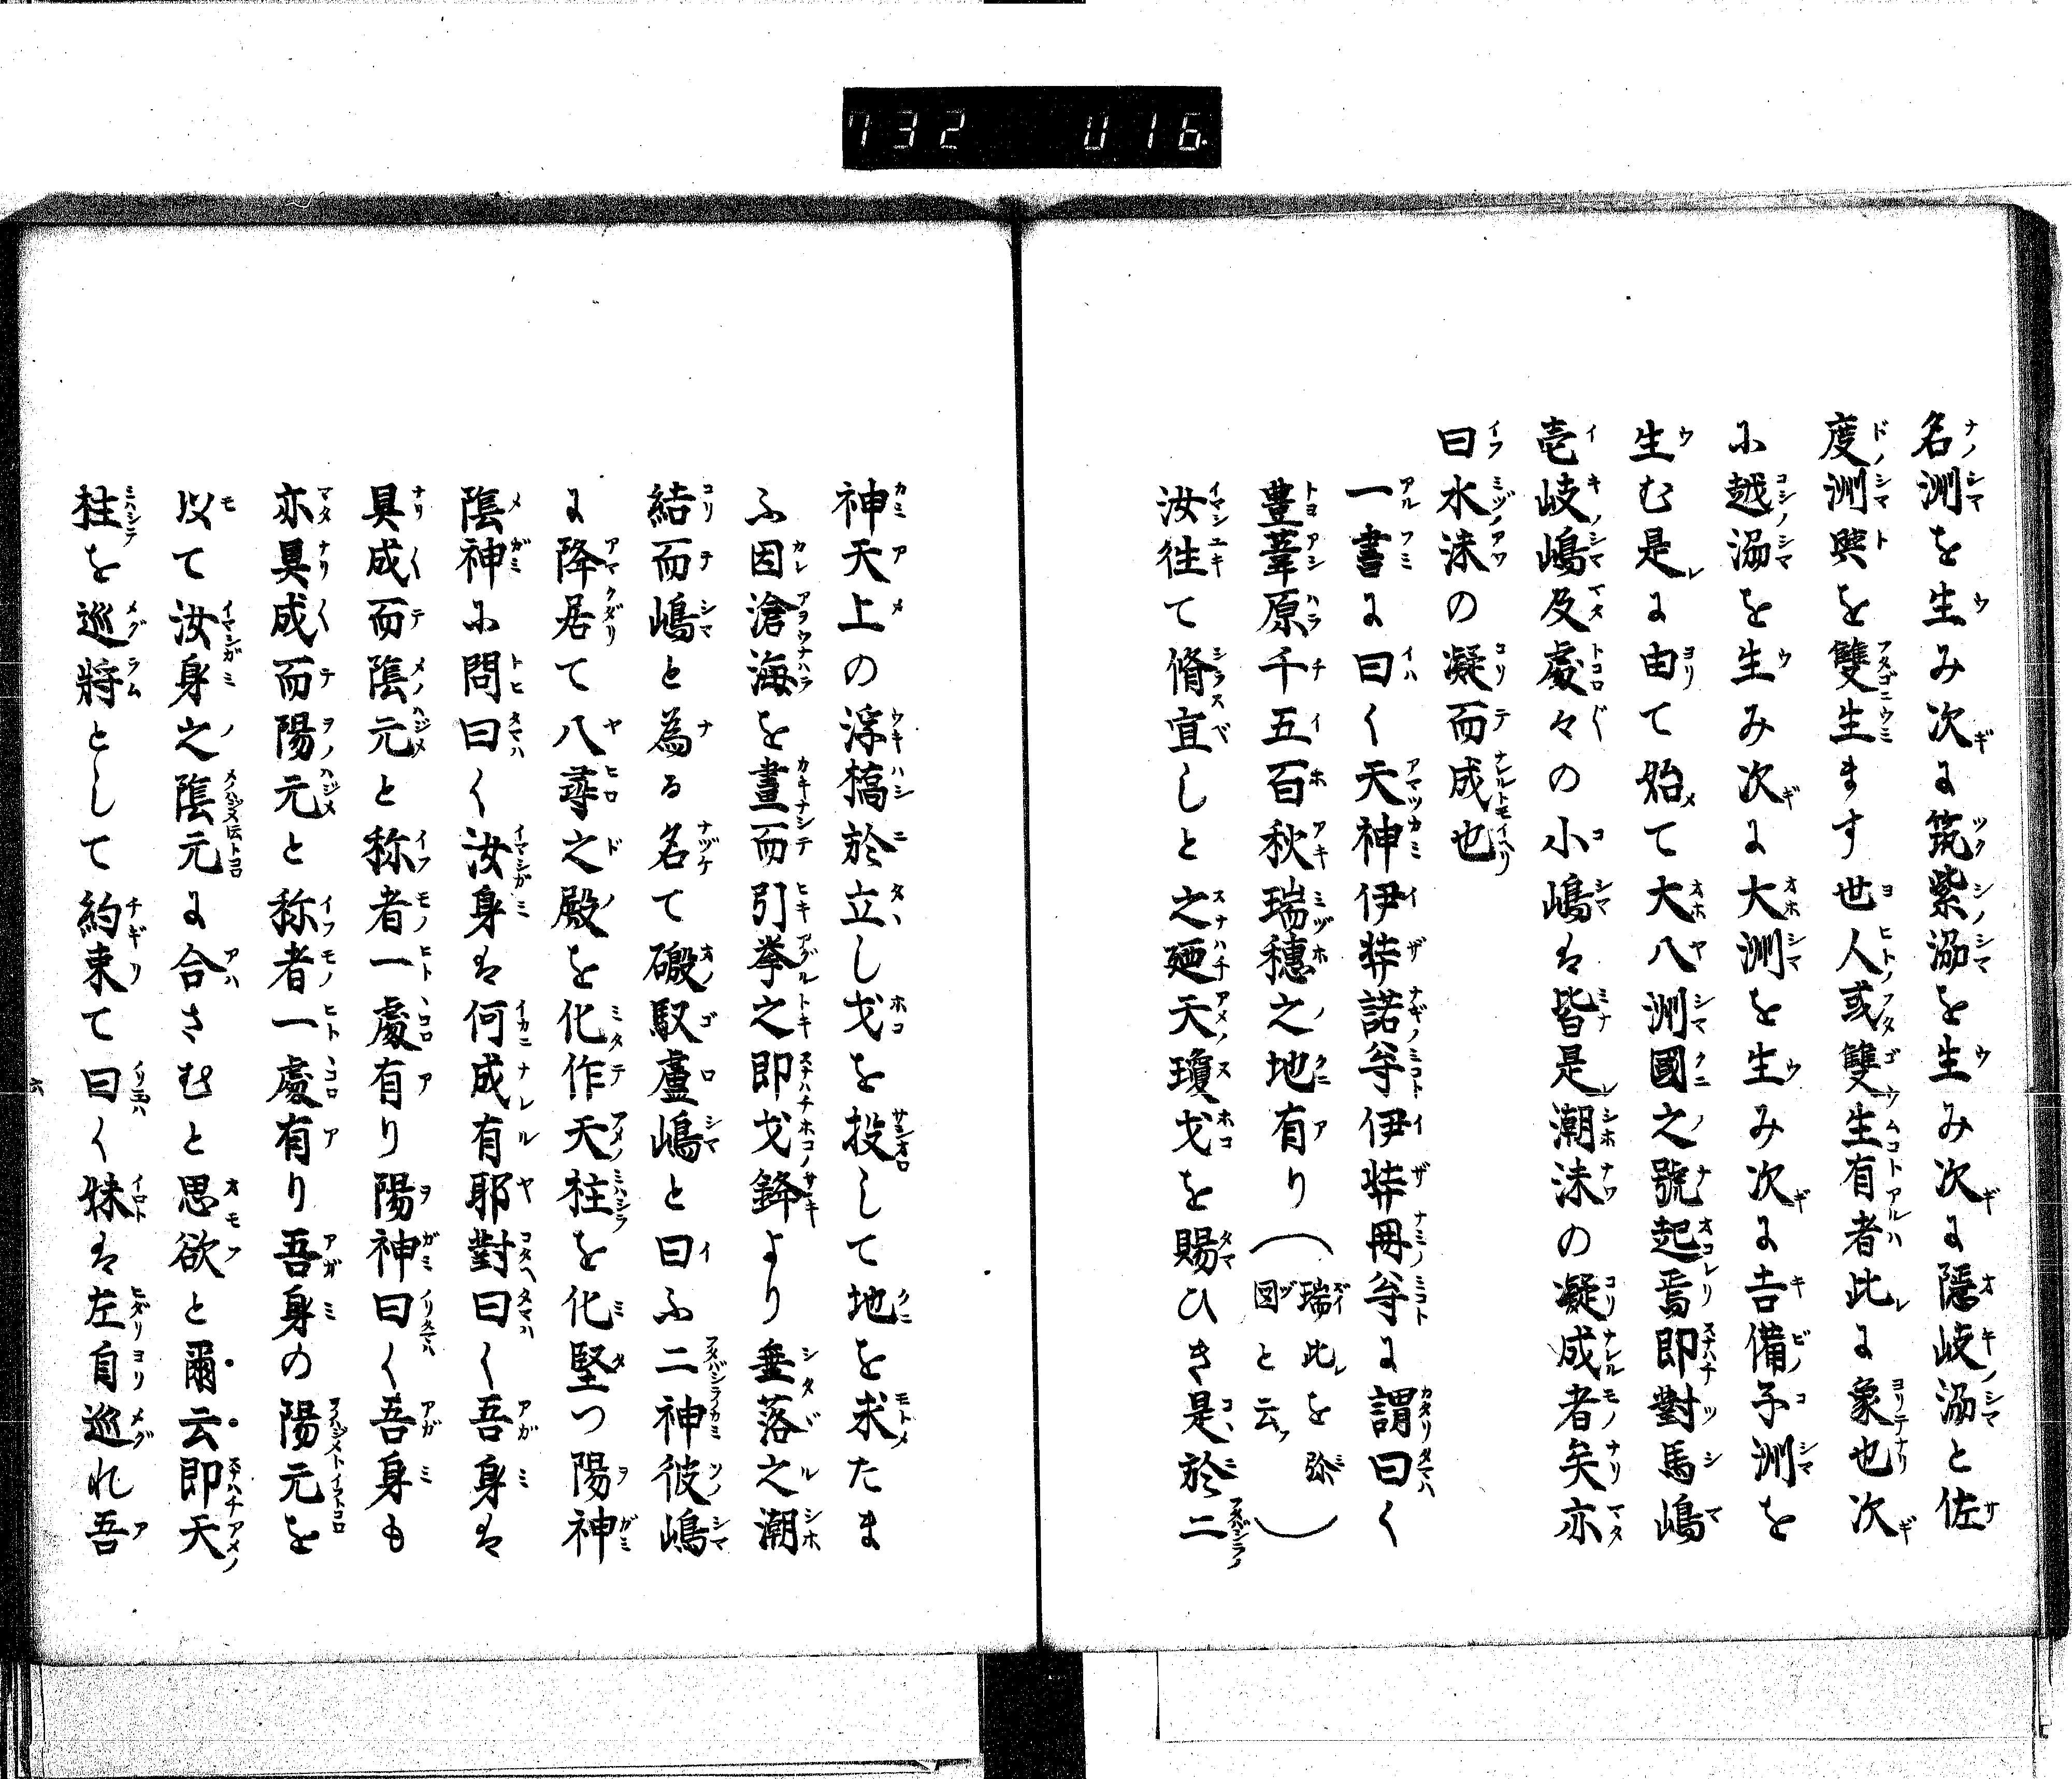 732 016.
名洲を生み次に筑紫洲を生み次に隠岐洲と佐
度洲與を雙生ます世人或雙生有者此に象也次
に越洲を生み次に大洲を生み次に吉備子洲を
生む是に由て始て大八洲國之號起焉即對馬嶋
壱岐嶋及處々の小嶋は皆是潮沫の凝成者矣亦
曰水沫の凝而成也
一書に曰く天神伊弉諾尊伊弉冊尊に謂曰く
豊葦原千五百秋瑞穗之地有り(瑞此を弥図と云)
汝往て脩宜しと之廼天瓊戈を賜ひき是於二
神天上の浮橋於立し戈を投して地を求たま
ふ因滄海を畫而引挙之即戈鋒より垂落之潮
結而嶋と為る名て磤馭盧嶋と曰ふ二神彼嶋
に降居て八尋之殿を化作天柱を化堅つ陽神
陰神に問曰く汝身は何成有耶對曰く吾身は
具成而陰元と称者一處有り陽神曰く吾身も
亦具成而陽元と称者一處有り吾身の陽元を
以て汝身之陰元に合さむと思欲と爾云即天
柱を巡將として約束て曰く妹は左自巡れ吾
六